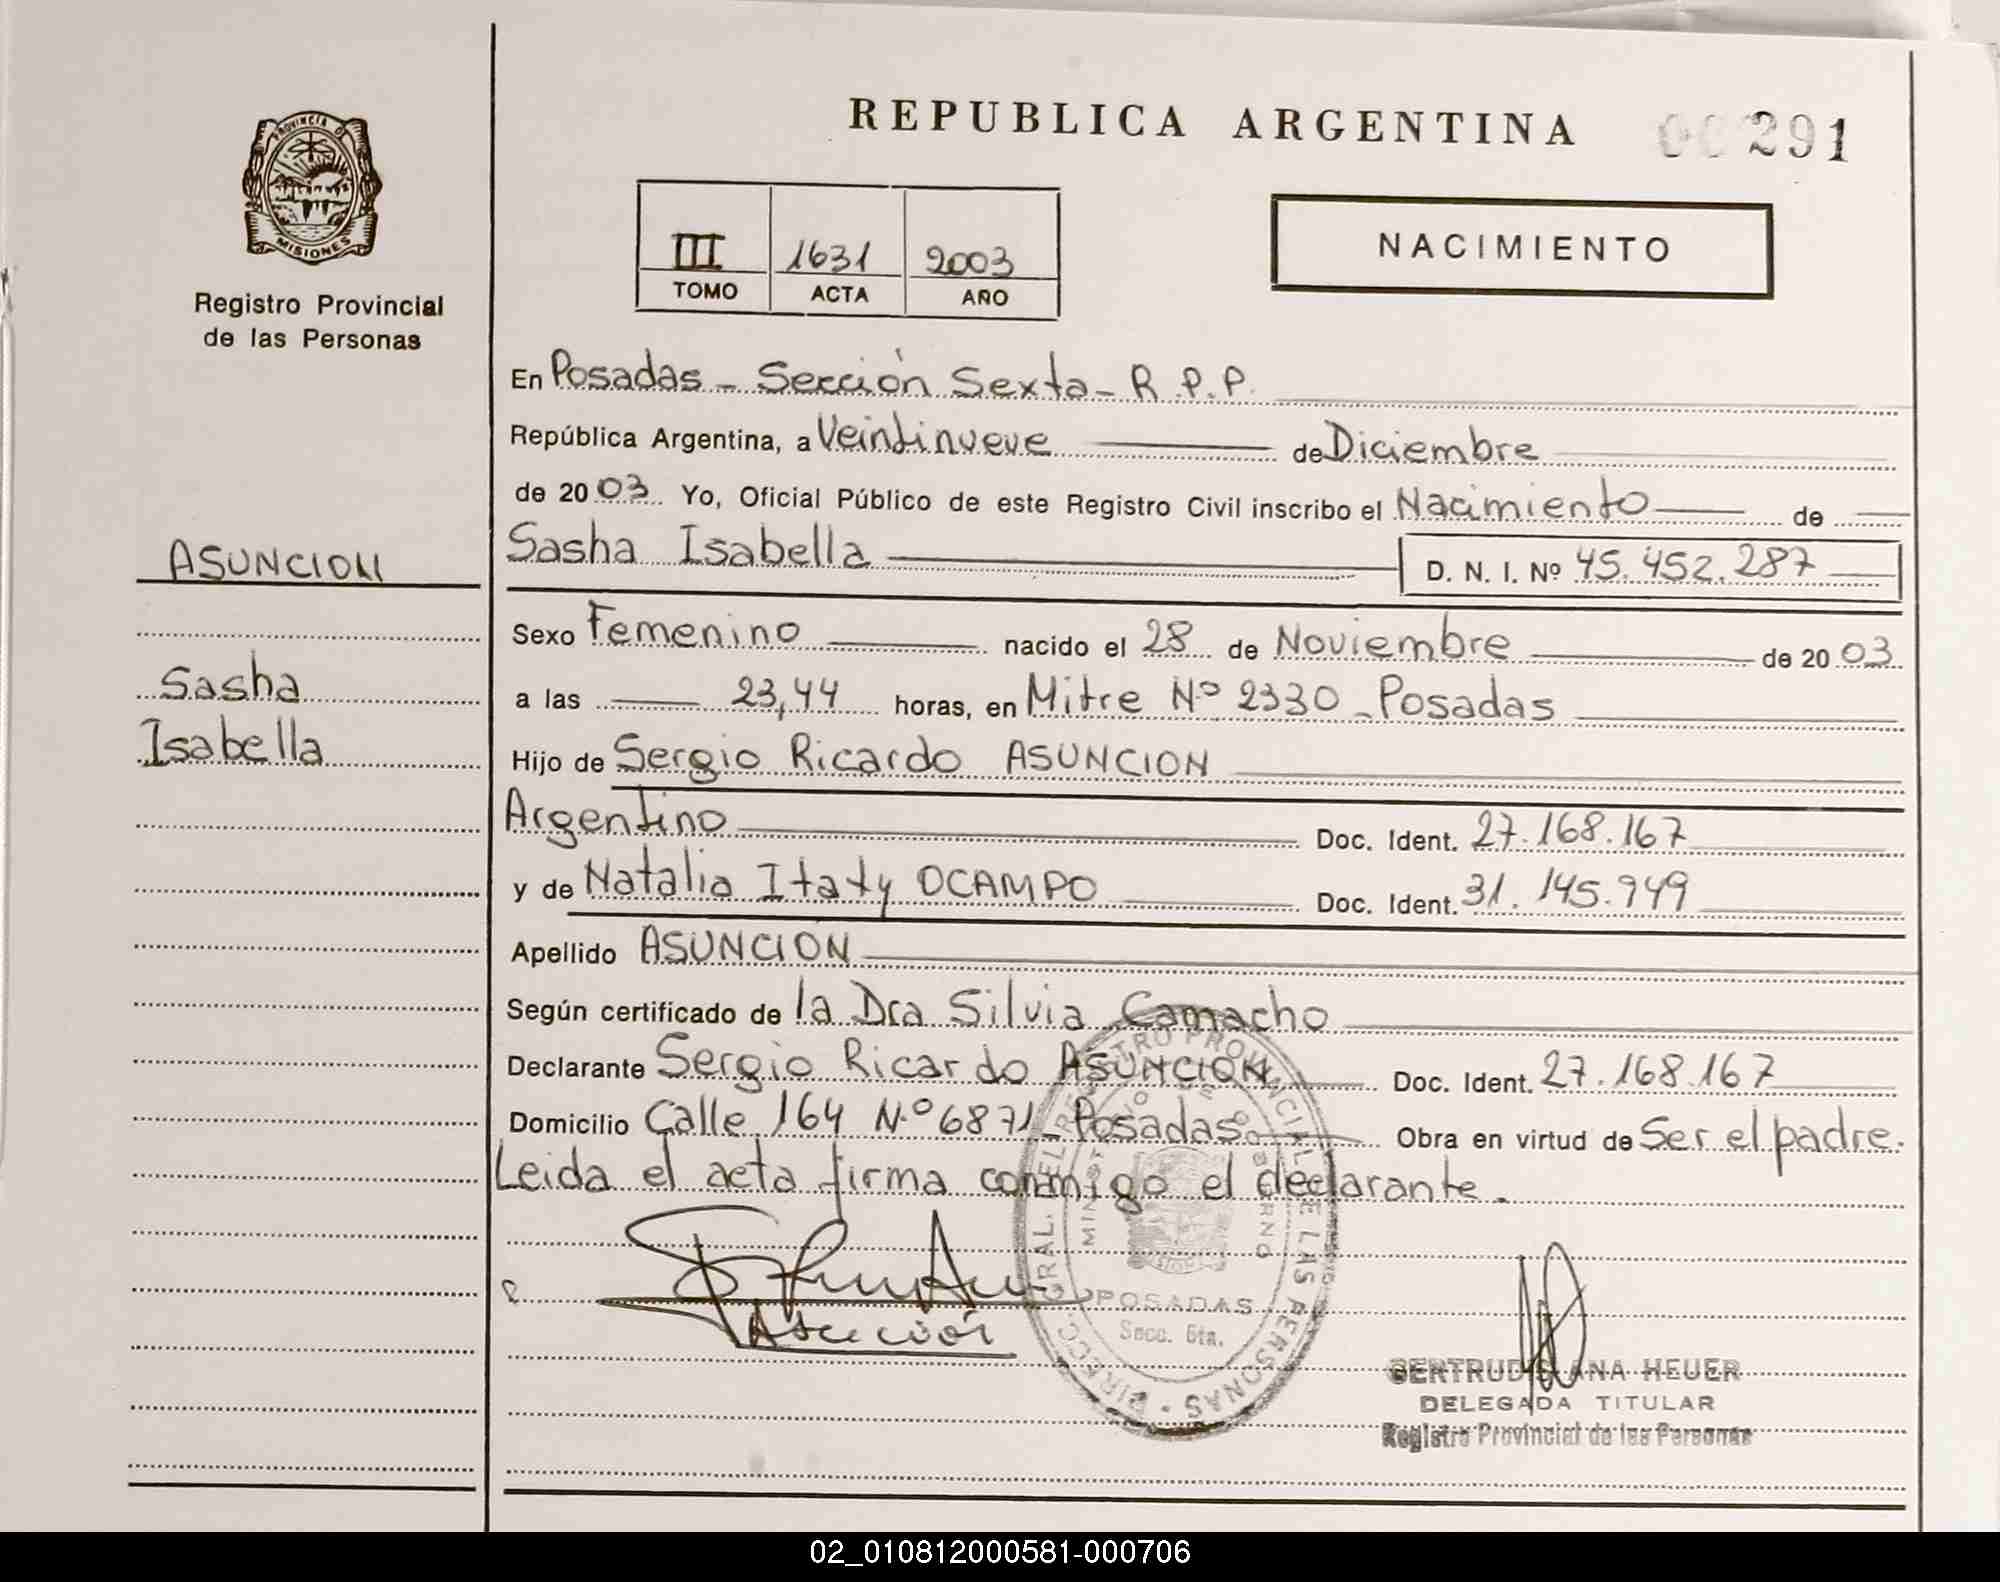 REPUBLICA ARGENTINA
00291
PROVINCIA DE
MISIONES
Registro Provincial
de las Personas
III 1631 2003
TOMO ACTA AÑO
NACIMIENTO
En Posadas - Sección Sexta - R.P.P.
República Argentina, a Veintinueve de Diciembre
de 2003 Yo, Oficial Público de este Registro Civil inscribo el Nacimiento de
Sasha Isabella D. N. I. Nº 45.452.287
ASUNCION
Sasha
Isabella
Sexo Femenino nacido el 28 de Noviembre de 2003
a las 23,44 horas, en Mitre Nº 2330 - Posadas
Hijo de Sergio Ricardo ASUNCION
Argentino Doc. Ident. 27.168.167
y de Natalia Itaty OCAMPO Doc. Ident. 31.145.949
Apellido ASUNCION
Según certificado de la Dra Silvia Camacho
Declarante Sergio Ricardo ASUNCION Doc. Ident. 27.168.167
Domicilio Calle 164 N.º 6871 - Posadas Obra en virtud de Ser el padre.
Leida el acta firma conmigo el declarante.
Asuncion
DIRECC. GRAL. DEL REGISTRO PROVINCIAL DE LAS PERSONAS
MINISTERIO DE GOBIERNO
POSADAS
Secc. 6ta.
GERTRUDIS ANA HEUER
DELEGADA TITULAR
Registro Provincial de las Personas
02_010812000581-000706